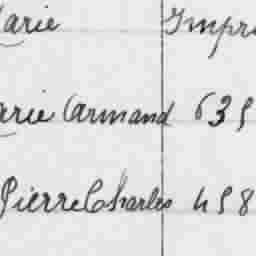 Marie Impri
Marie Armand 639
Pierre Charles 498